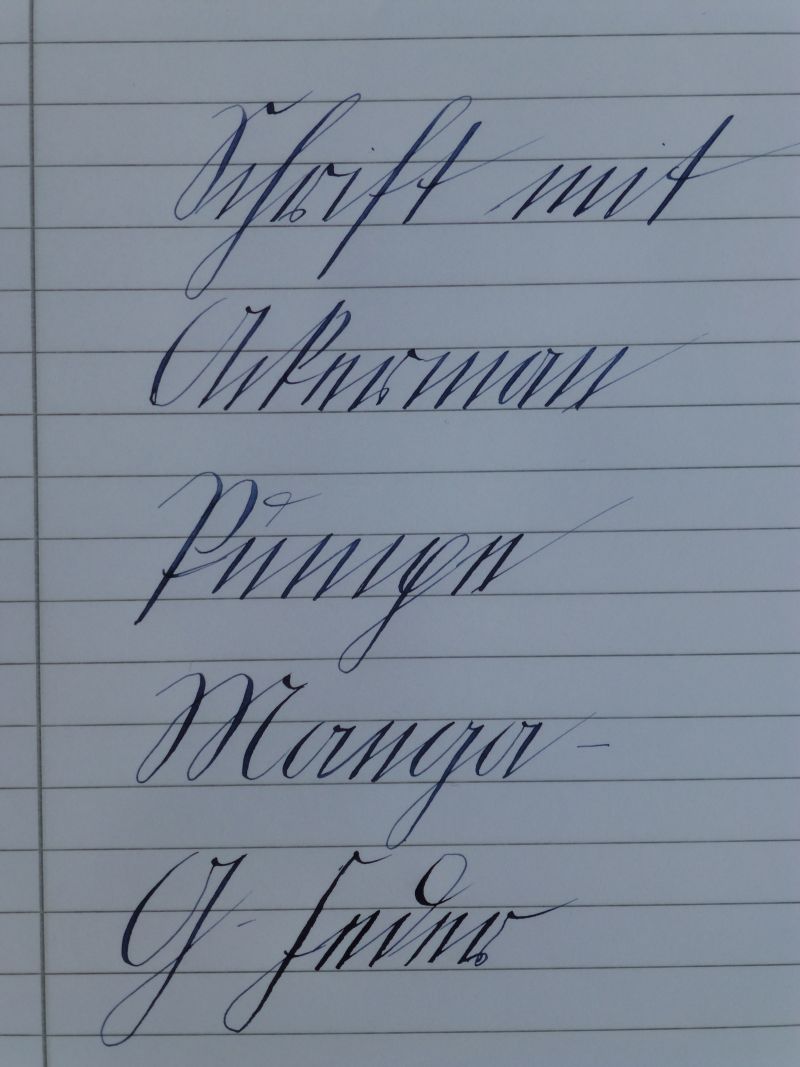 Schrift mit
Ackerman
Pumpe
Manga-
G-Feder